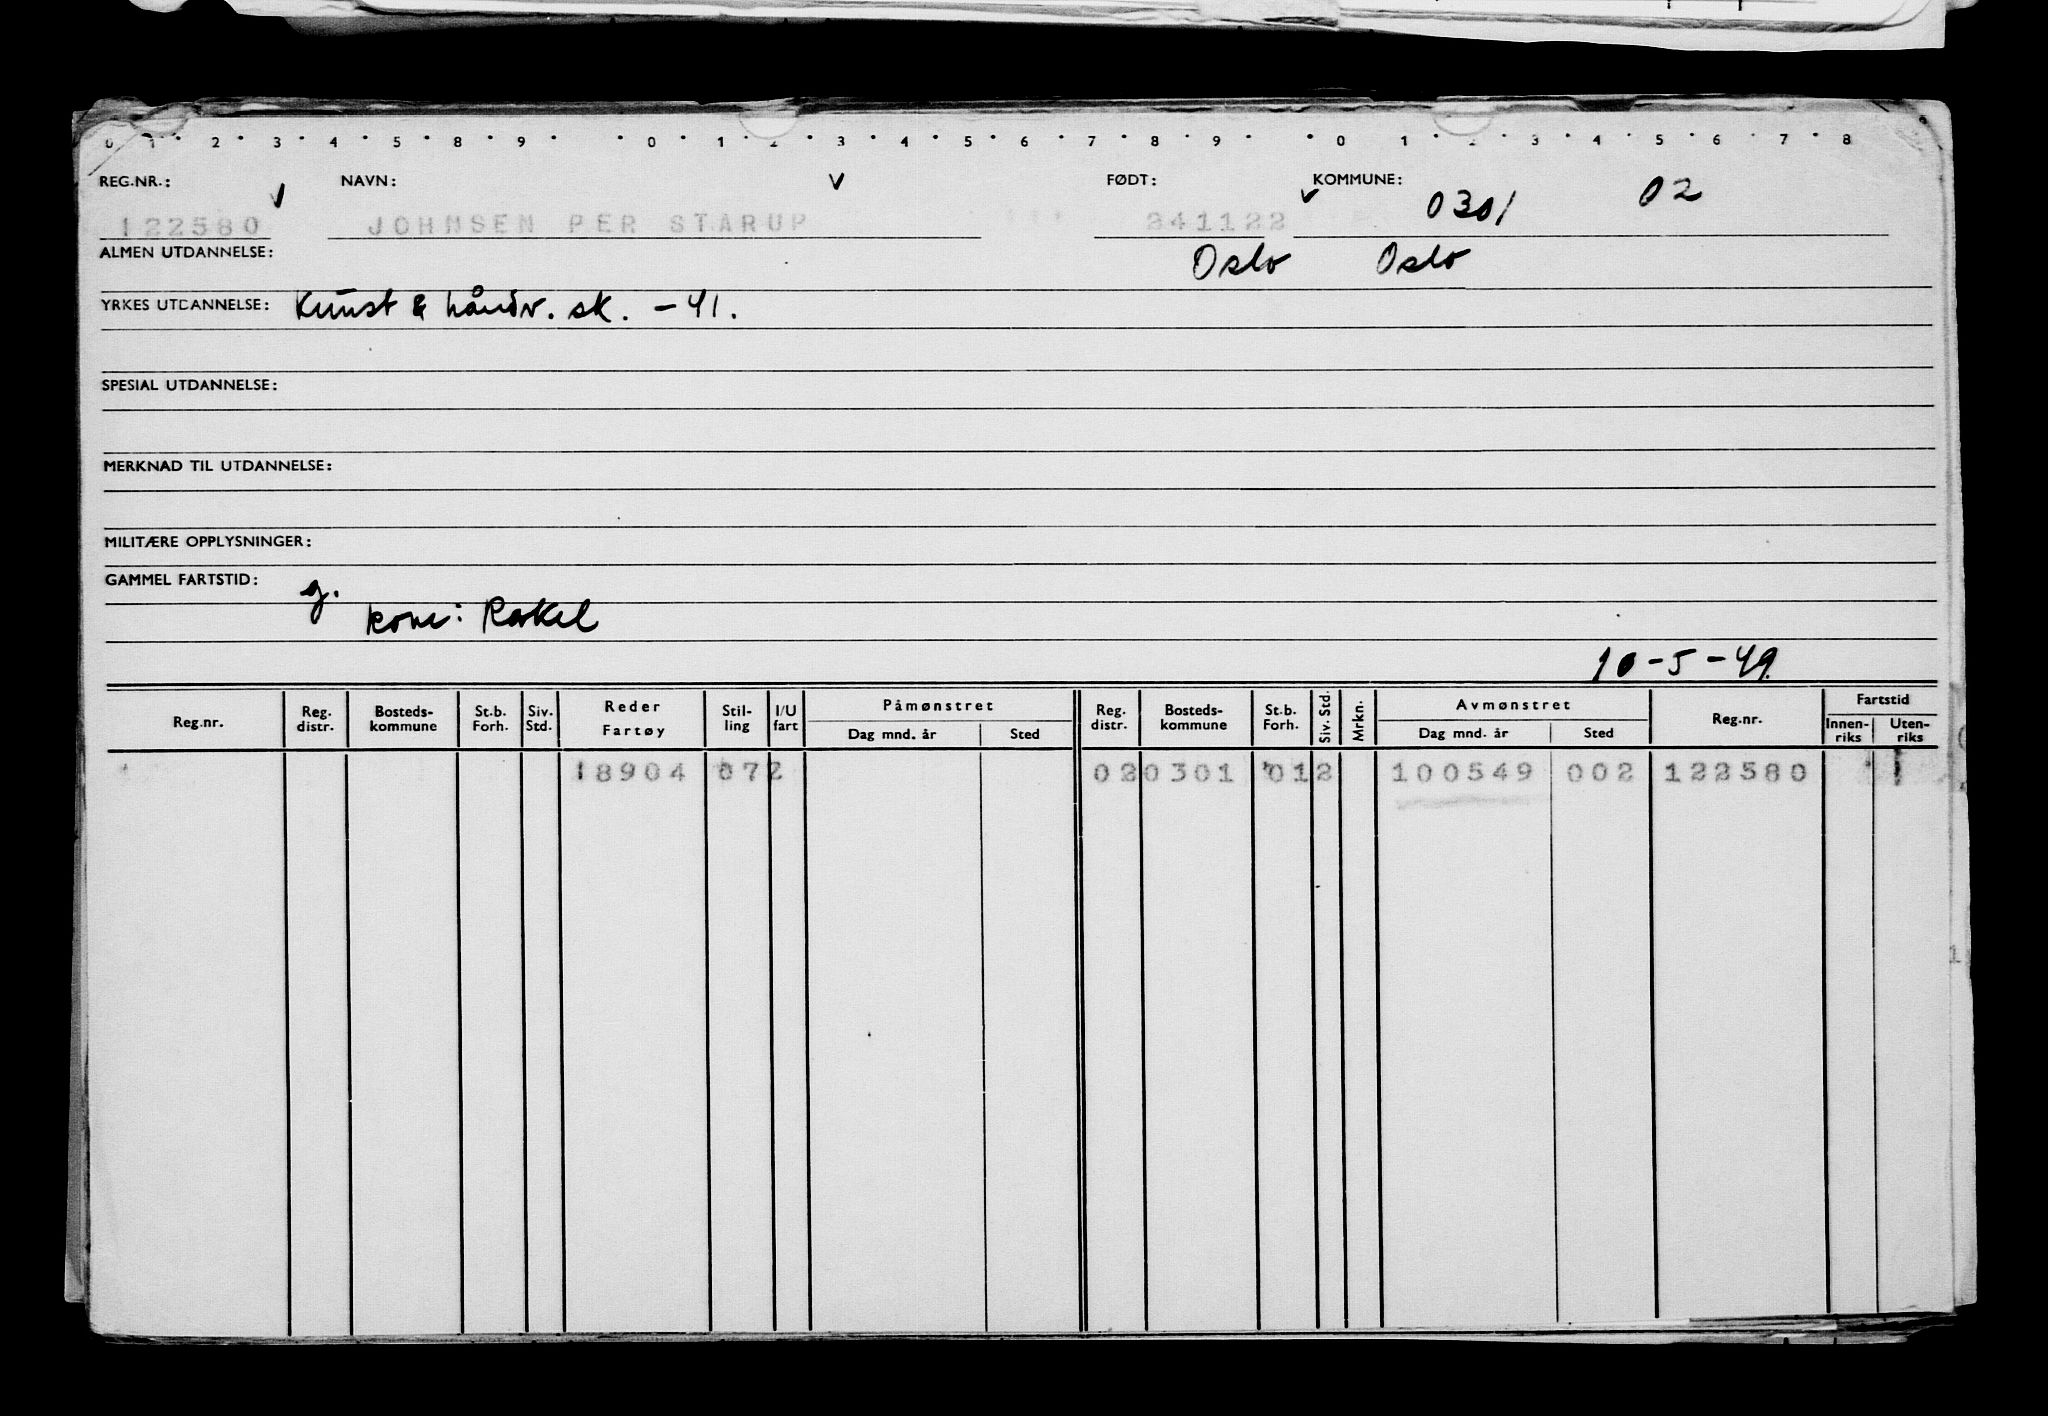 0 1 2 3 4 5 6 7 8 9 0 1 2 3 4 5 6 7 8 9 0 1 2 3 4 5 6 7 8
REG.NR.: NAVN: FØDT: KOMMUNE: 0301 02
122580 JOHNSEN PER STARUP 241122
ALMEN UTDANNELSE: Oslo Oslo
YRKES UTDANNELSE: Kunst & håndv. sk. – 41.
SPESIAL UTDANNELSE:
MERKNAD TIL UTDANNELSE:
MILITÆRE OPPLYSNINGER:
GAMMEL FARTSTID: g.
kone: Rakel
10-5-49
Reg.nr. Reg. distr. Bosteds-kommune St.b. Forh. Siv. Std. Reder Fartøy Stil-ling I/U fart Påmønstret Dag mnd. år Sted Reg. distr. Bosteds-kommune St.b. Forh. Siv. Std. Mrkn. Avmønstret Dag mnd. år Sted Reg.nr. Fartstid Innen-riks Uten-riks
18904 072 020301 012 100549 002 122580